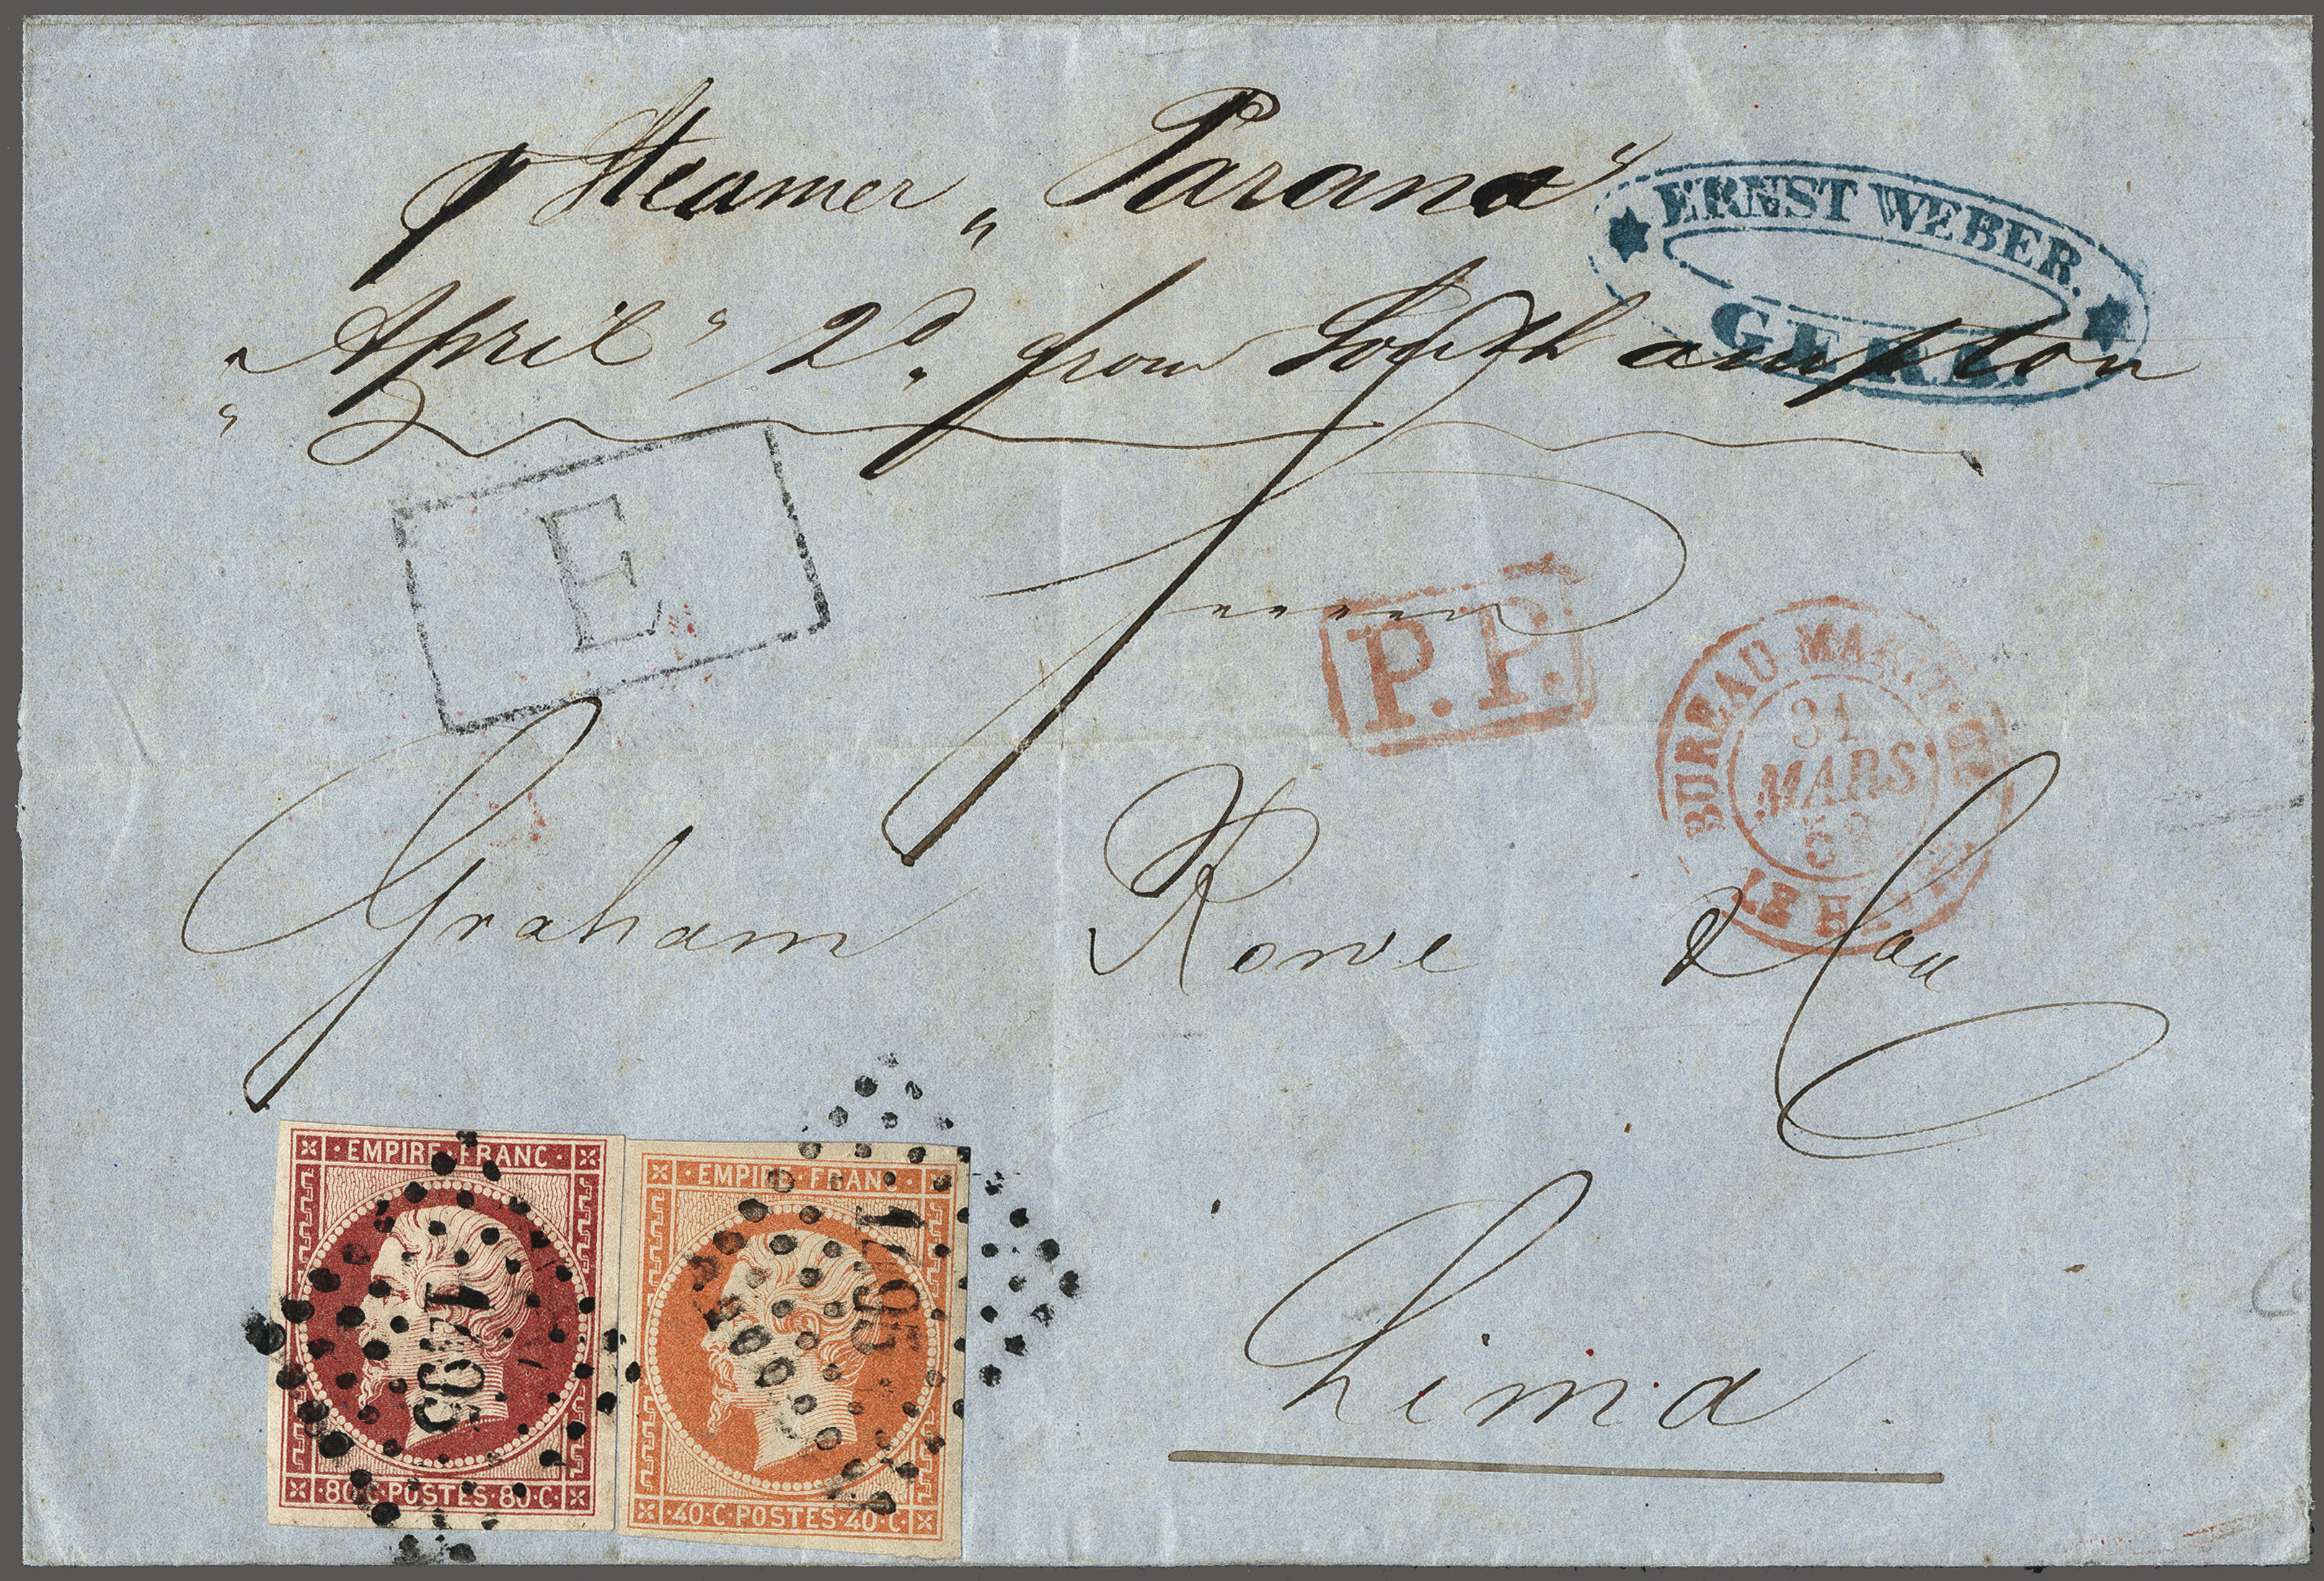 p Steamer „Parana"
ERNST WEBER.
GERA.
„April" 2d. from Southampton
E
P.P.
BUREAU MARIT.
31
MARS
58
LE HAVRE
Graham Rowe & Co
Lima.
·EMPIRE·FRANC·
1495
·80·C·POSTES·80·C·
·EMPIRE·FRANC·
1495
·40·C·POSTES·40·C·